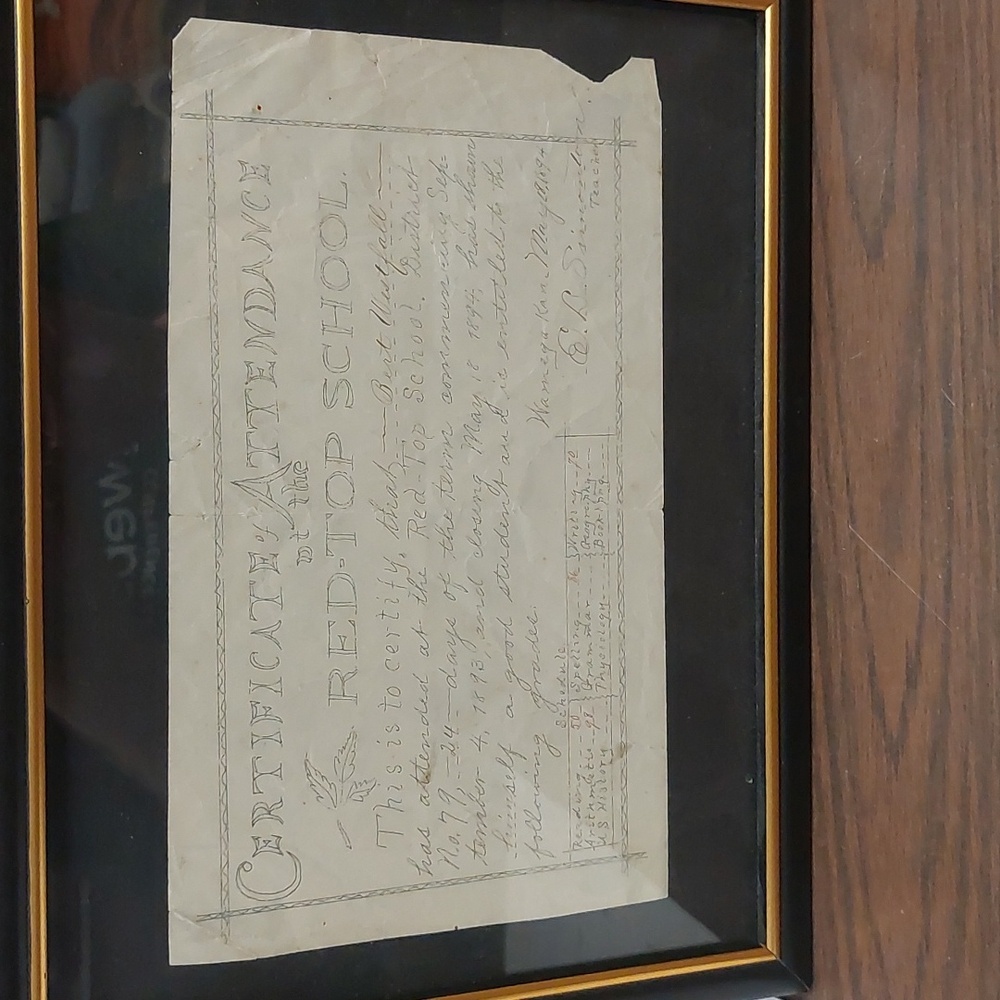 CERTIFICATE of ATTENDANCE
at the
RED-TOP SCHOOL.
This is to certify, that Bert
has attended at the Red-Top School. District
No. 79, 24 days of the term commencing Sep-
tember 4, 1893, and closing May 18 1894, has shown
himself a good student and is entitled to the
following grades.
Wamego Kan. May 1894
Schedule.
Reading Spelling Writing 90
Arithmetic Grammar Geography
U.S. History Physiology Book'ping
E. L.
Teacher